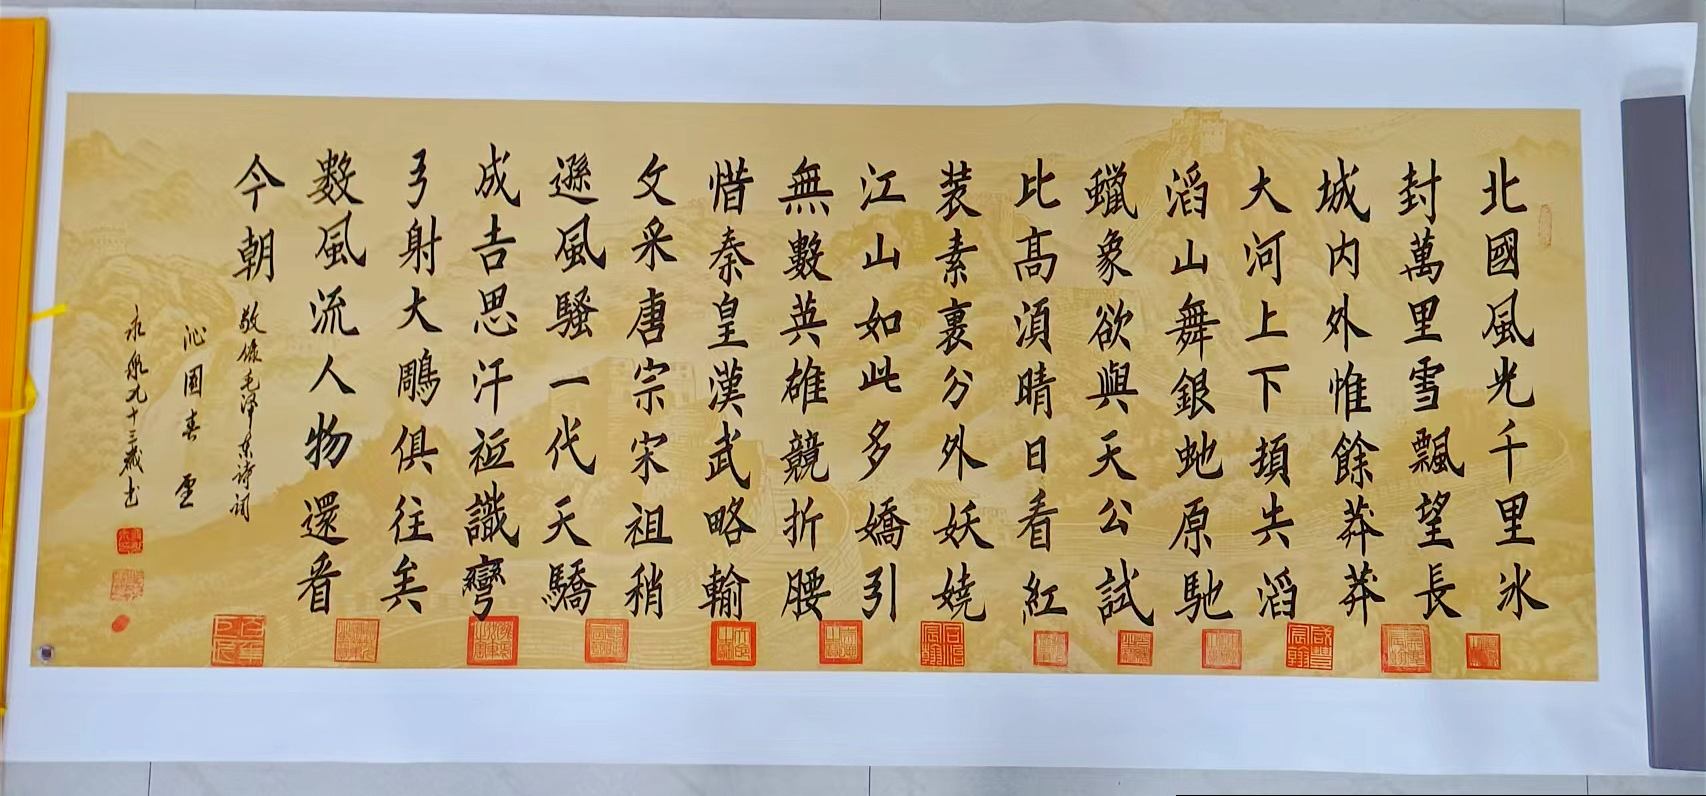 北國風光千里冰
封萬里雪飄望長
城内外惟餘莽莽
大河上下頓失滔
滔山舞銀虵原馳
蠟象欲與天公試
比高須晴日看紅
装素裹分外妖嬈
江山如此多嬌引
無數英雄競折腰
惜秦皇漢武略輸
文采唐宗宋祖稍
遜風騷一代天驕
成吉思汗祗識彎
弓射大鵰俱往矣
數風流人物還看
今朝
敬録毛泽东诗词
沁園春 雪
永泉九十三歲书